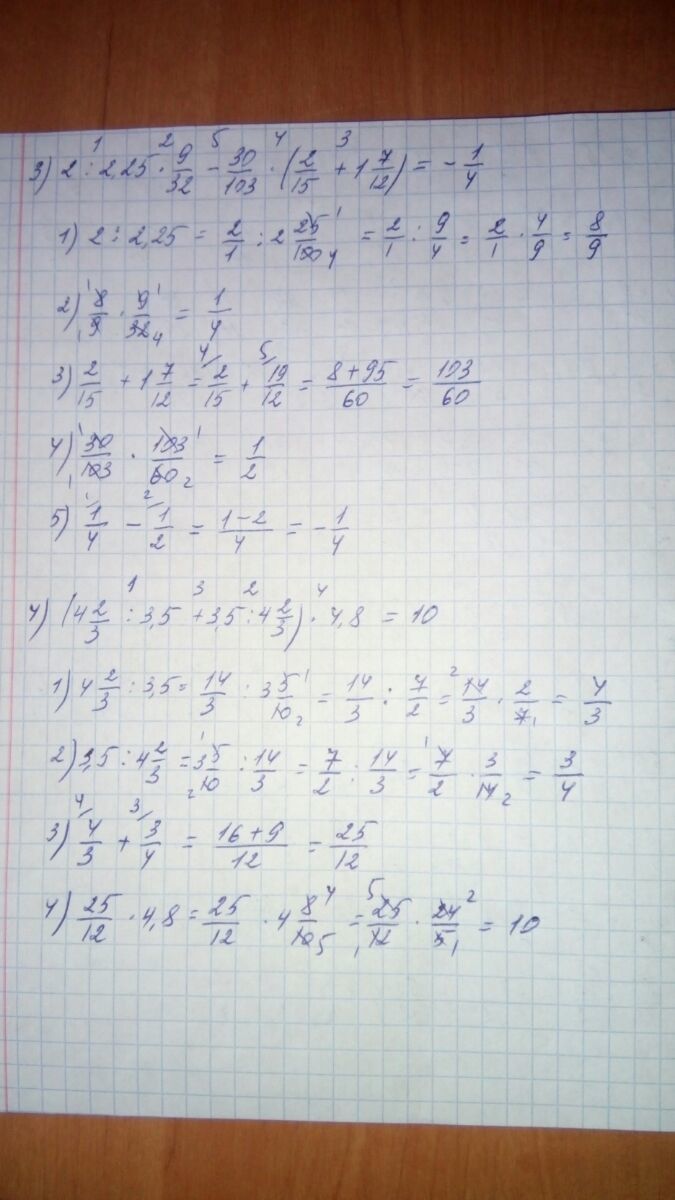 3) 2 : 2,25 · 9/32 − 30/103 · (2/15 + 1 7/12) = − 1/4
1) 2 : 2,25 = 2/1 : 2 25/100 = 2/1 : 9/4 = 2/1 · 4/9 = 8/9
2) 8/9 · 9/32 = 1/4
3) 2/15 + 1 7/12 = 2/15 + 19/12 = 8+95/60 = 103/60
4) 30/103 · 103/60 = 1/2
5) 1/4 − 1/2 = 1−2/4 = − 1/4
4) (4 2/3 : 3,5 + 3,5 : 4 2/3) · 4,8 = 10
1) 4 2/3 : 3,5 = 14/3 : 3 5/10 = 14/3 : 7/2 = 14/3 · 2/7 = 4/3
2) 3,5 : 4 2/3 = 3 5/10 : 14/3 = 7/2 : 14/3 = 7/2 · 3/14 = 3/4
3) 4/3 + 3/4 = 16+9/12 = 25/12
4) 25/12 · 4,8 = 25/12 · 4 8/10 = 25/12 · 24/5 = 10